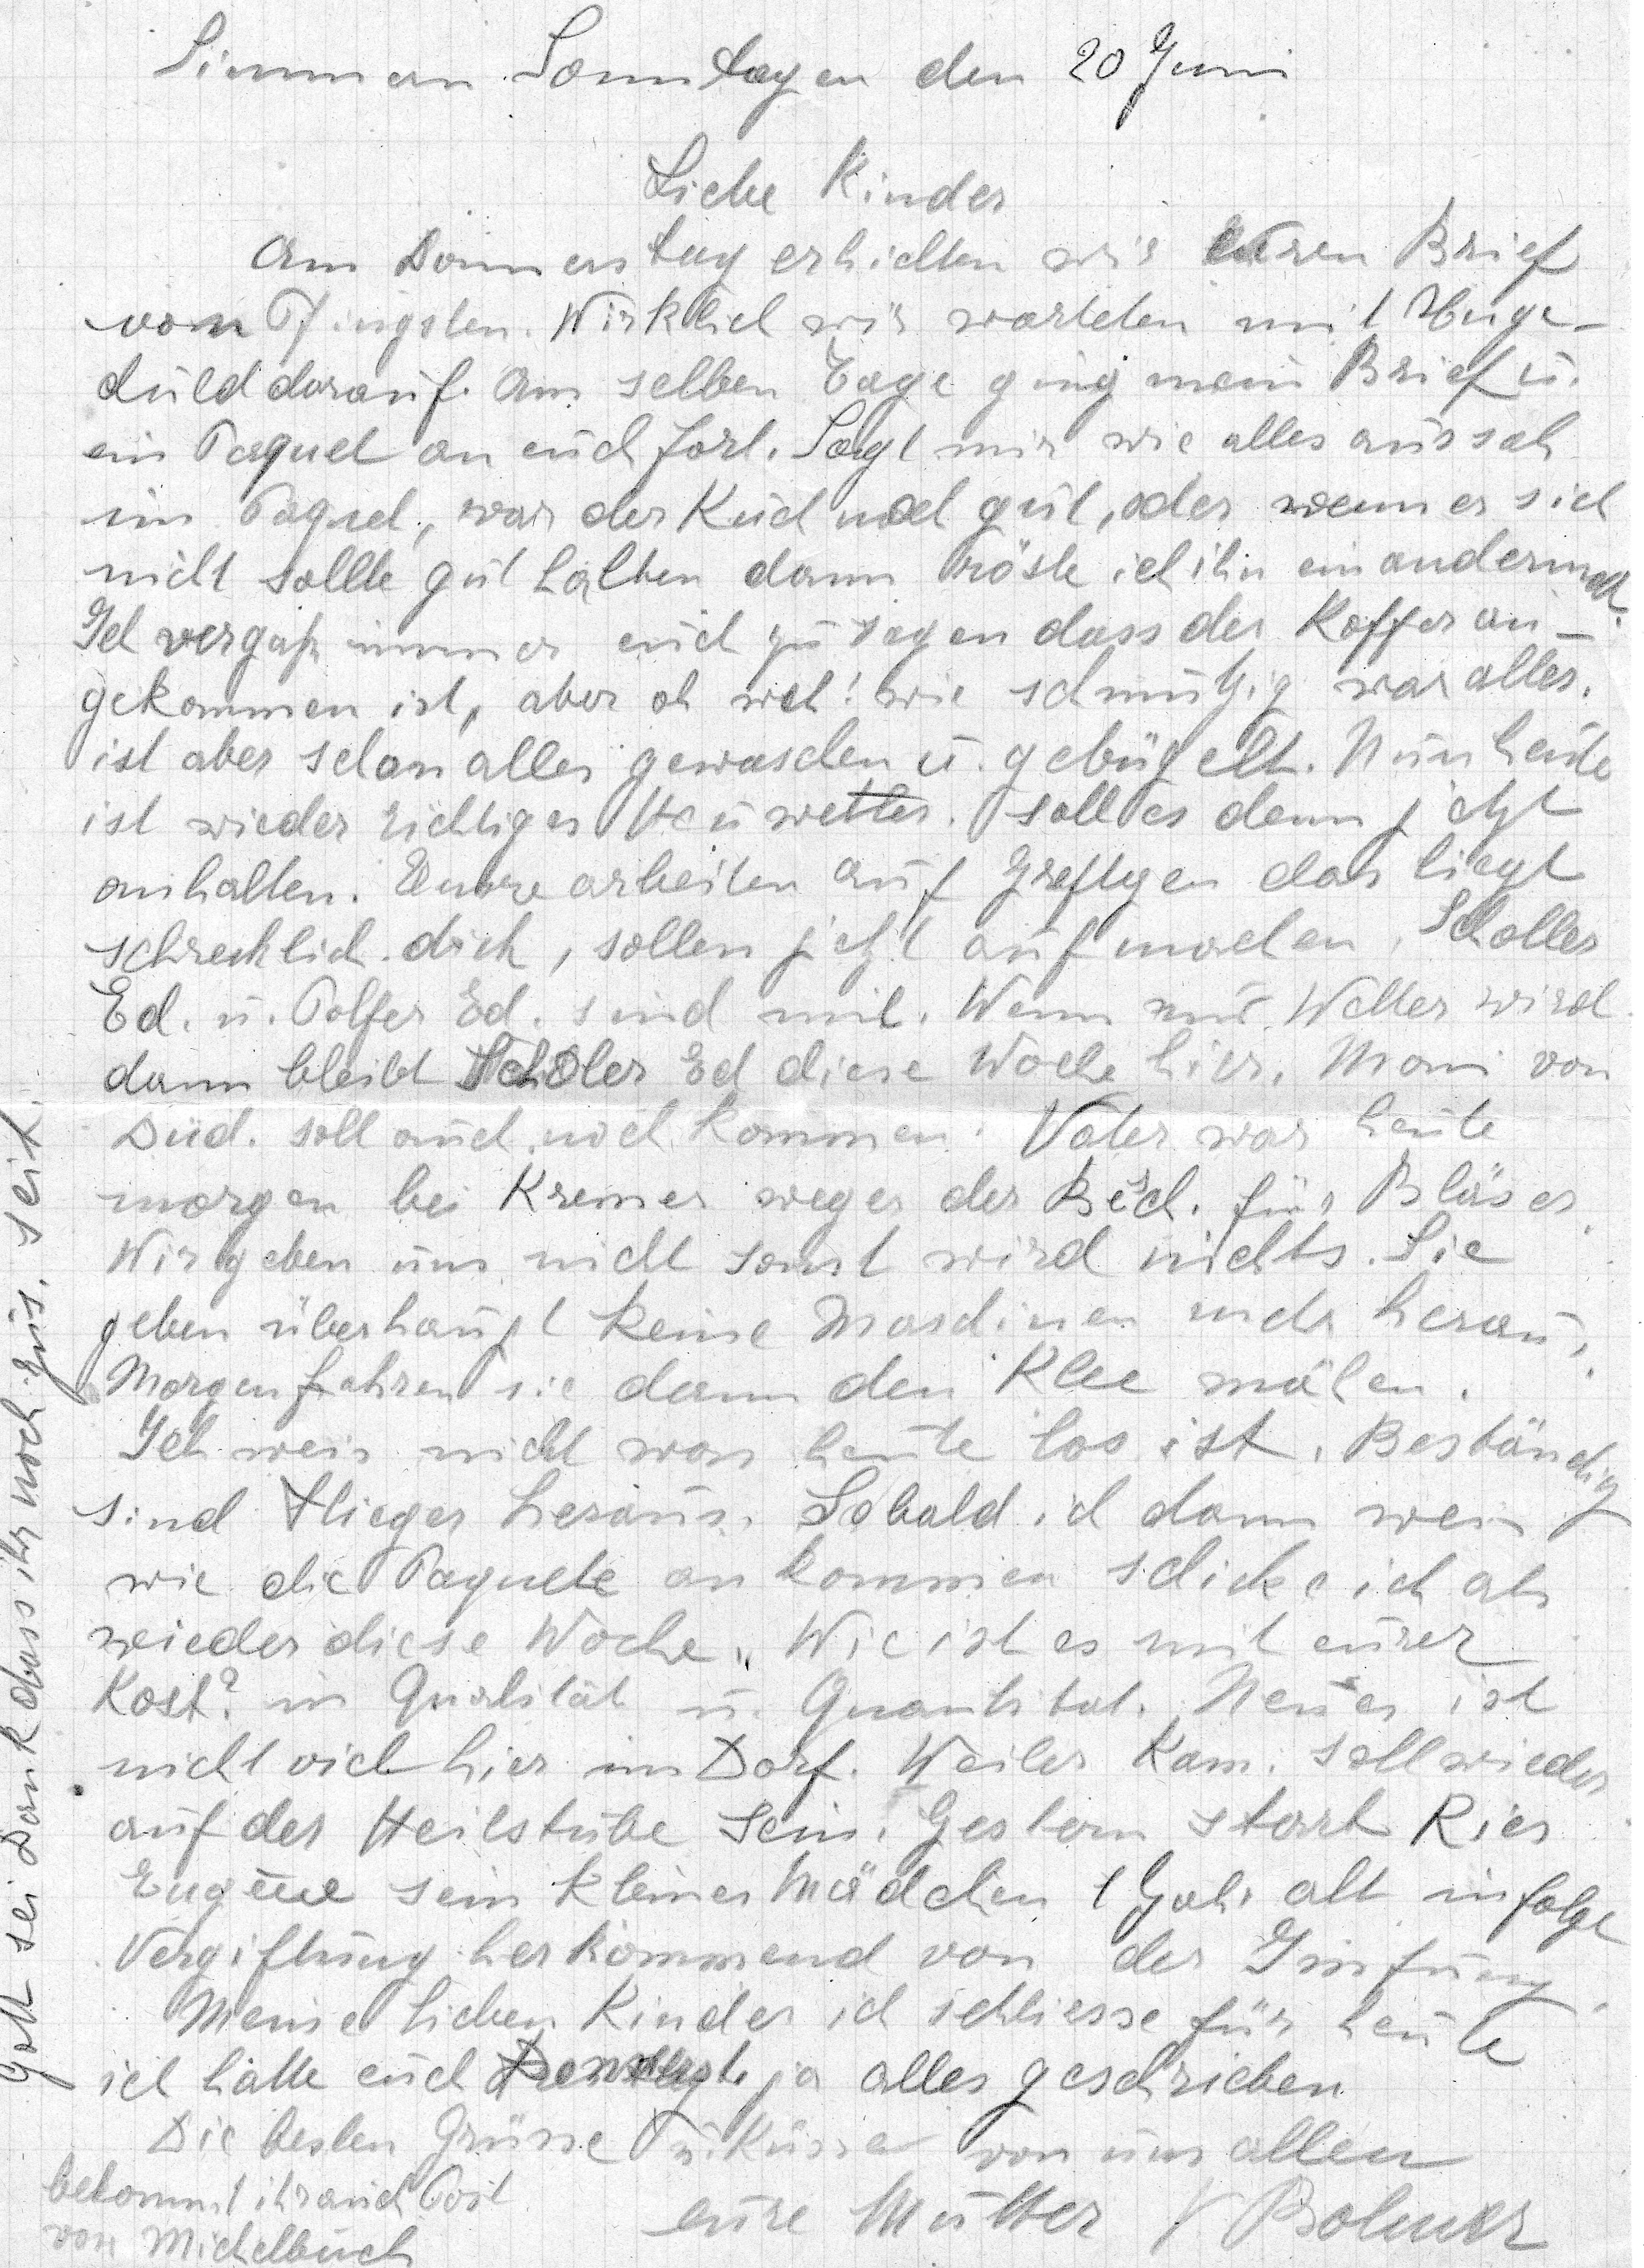 Simmern Sonntagen den 20 Juni
Liebe Kinder
Am Donnerstag erhielten wir euren Brief
von Pfingsten. Wirklich wir warteten mit Unge-
duld darauf. Am selben Tage ging mein Brief u.
ein Paquet an euch fort. Sagt mir wie alles aussah
im Paquet, war der Kuch noch gut, oder wenn er sich
nicht sollte gut halten dann röste ich ihn ein andermal.
Ich vergaß immer euch zu sagen dass der Koffer an-
gekommen ist, aber oh weh! wie schmutzig war alles.
ist aber schon alles gewaschen u. gebügelt. Nun heute
ist wieder richtiges Heuwetter. soll es denn jetzt
anhalten. Unsre arbeiten auf das liegt
schrecklich dick, sollen jetzt aufmachen. Scholler
Ed. u. Ed. sind mit. Wenn nur Wetter wird
dann bleibt Scholer Ed diese Woche hier. Moni von
Düd. soll auch noch kommen. Vater war heute
morgen bei Kremer wegen der für Bläser.
Wir geben um nicht sonst wird nichts. Sie
geben überhaupt keine Maschinen mehr heraus.
Morgen fahren sie dann den Klee mähen.
Ich weis nicht was heute los ist. Beständig
sind Flieger heraus. Sobald ich dann weis
wie die Paquete ankommen schicke ich als
wieder diese Woche. Wie ist es mit eurer
Kost? in Qualität u. Quantitat. Neues ist
nicht viel hier im Dorf. Weiler Kam. soll wieder
auf der Heilstube sein. Gestern starb Ries
Eugene sein kleines Mädchen 1 Jahr alt infolge
Vergiftung herkommend von der Imfung.
Meine lieben Kinder ich schliesse für heute
ich hatte euch ja alles geschrieben
Die besten Grüsse u. Küsse von uns allen
eure Mutter V Bolmer
bekommt ihr auch Post
von Michelbuch
Gott sei Dank dass ihr noch zus. seit.